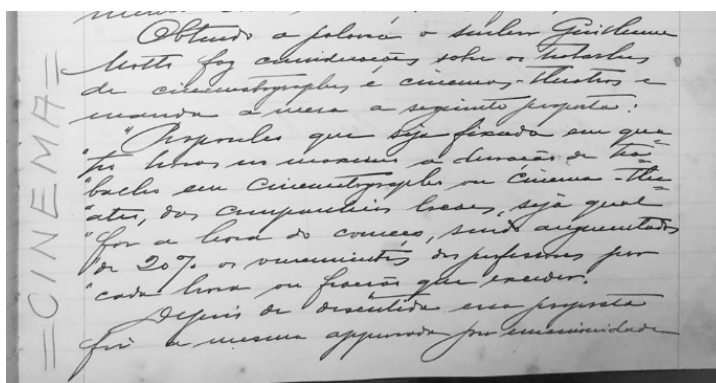 =CINEMA=
Obtendo a palavra o senhor Guilherme
Motta faz considerações sobre os trabalhos
de cinematographos e cinemas-theatros e
manda a mesa a seguinte proposta:
"Proponho que seja fixada em qua-
"tro horas no maximo a duração de tra-
"balho em cinematographo ou cinema-the-
"atro, das companhias locaes, seja qual
"for a hora do começo, sendo augmentados
"de 20% os vencimentos dos professores por
"cada hora ou fracção que exceder.
Depois de discutida essa proposta
foi a mesma approvada por unanimidade